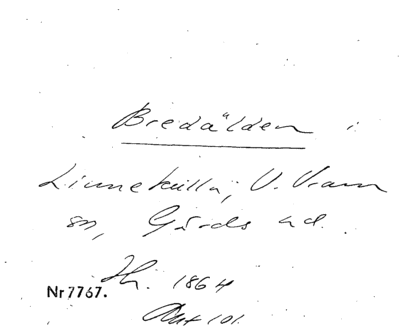 Bredälden i
Linnekulla, V. Vram
sn, Gärds hd.
Hi. 1864
Nr 7767.
Akt 101.